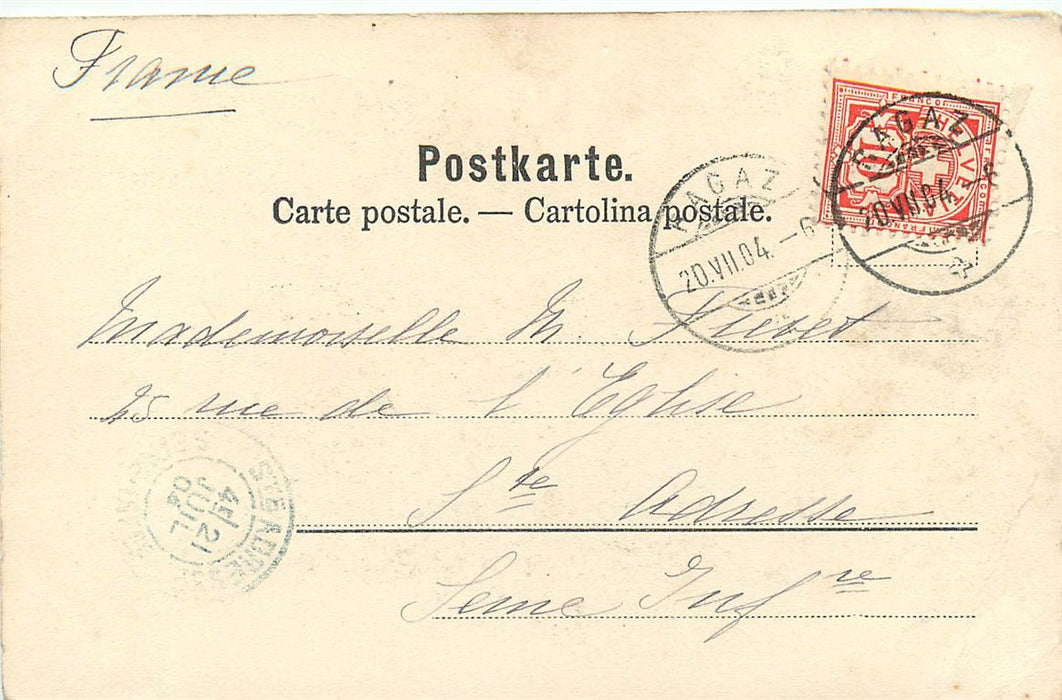 France
Postkarte.
Carte postale. — Cartolina postale.
FRANCO
HELVETIA
10
RAGAZ
20.VII.04.–6
RAGAZ
20.VII.04.–6
Mademoiselle M. Fievet
25 rue de l'Eglise
Ste Adresse
Seine Infre
STE ADRESSE
4E 21
JUIL
04